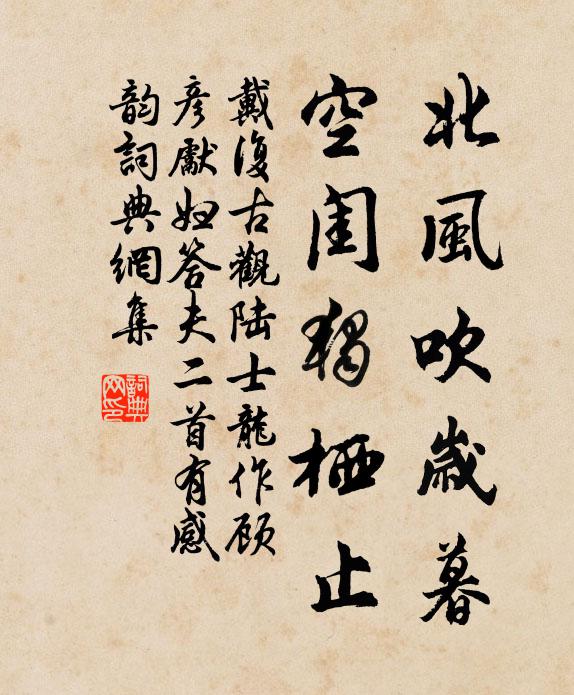 北風吹歲暮
空閨獨栖止
戴復古觀陆士龍作顾
彦獻妇答夫二首有感
韵詞典網集
詞典
网印